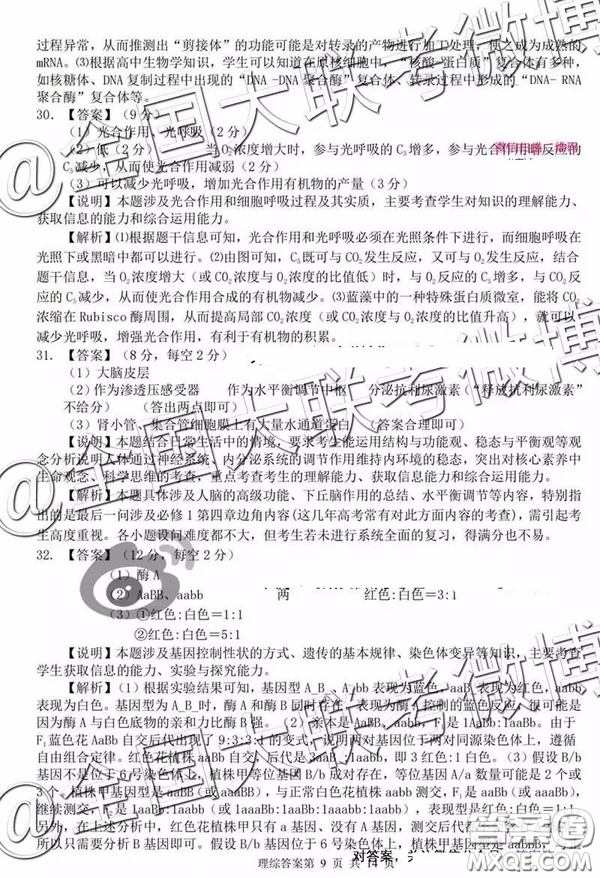 过程异常，从而推测出“剪接体”的功能可能是对转录的产物进行加工处理，使之成为成熟的
mRNA。⑶根据高中生物学知识，学生可以知道在原核细胞中，“核酸-蛋白质”复合体有多种，
如核糖体、DNA复制过程中出现的“DNA-DNA聚合酶”复合体、转录过程中形成的“DNA- RNA
聚合酶”复合体等。
30. 【答案】（9分）
（1）光合作用、光呼吸（2分）
（2）低（2分） 当O₂浓度增大时，参与光呼吸的C₅增多，参与光合作用暗反应的
C₅减少，从而使光合作用减弱（2分）
（3）可以减少光呼吸，增加光合作用有机物的产量（3分）
【说明】本题涉及光合作用和细胞呼吸过程及其实质，主要考查学生对知识的理解能力、
获取信息的能力和综合运用能力。
【解析】⑴根据题干信息可知，光合作用和光呼吸必须在光照条件下进行，而细胞呼吸在
光照下或黑暗中都可以进行。⑵由图可知，C₅既可与CO₂发生反应，又可与O₂发生反应，结合
题干信息，当O₂浓度增大（或O₂浓度与CO₂浓度的比值低）时，与O₂反应的C₅增多，与CO₂反
应的C₅减少，从而使光合作用合成的有机物减少。⑶蓝藻中的一种特殊蛋白质微室，能将CO₂
浓缩在Rubisco酶周围，从而提高局部CO₂浓度（或CO₂浓度与O₂浓度的比值升高），就可以
减少光呼吸，增强光合作用，有利于有机物的积累。
31. 【答案】（8分，每空2分）
（1）大脑皮层
（2）作为渗透压感受器 作为水平衡调节中枢 分泌抗利尿激素（“释放抗利尿激素”
不给分） （答出两点即可）
（3）肾小管、集合管细胞膜上有大量水通道蛋白 （答案合理即可）
【说明】本题结合日常生活中的情境，要求考生能运用结构与功能观、稳态与平衡观等观
念分析说明人体通过神经系统、内分泌系统的调节作用维持内环境的稳态，突出对核心素养中
生命观念、科学思维的考查，重点考查考生的理解能力、获取信息能力和综合运用能力。
【解析】本题具体涉及人脑的高级功能、下丘脑作用的总结、水平衡调节等内容，特别指
出的是最后一问涉及必修1第四章边角内容(这几年高考常有对此方面内容的考查)，需引起考
生高度重视。各小题设问难度都不大，但考生若未进行系统全面的复习，得满分也不易。
32. 【答案】（12分，每空2分）
（1）酶A
（2）AaBB、aabb 两 红色:白色=3:1
（3）①红色:白色=1:1
②红色:白色=5:1
【说明】本题涉及基因控制性状的方式、遗传的基本规律、染色体变异等知识，主要考查
学生获取信息的能力、实验与探究能力。
【解析】（1）根据实验结果可知，基因型A_B_、A_bb表现为蓝色，aaB_表现为红色，aabb
表现为白色。基因型为A_B_时，酶A和酶B同时存在，表现为酶A控制的蓝色反应，很可能是
因为酶A与白色底物的亲和力比酶B强。（2）亲本是AaBB、aabb，F₁是1AaBb:1aaBb。由于
F₁蓝色花AaBb自交后代出现了9:3:3:1的变式，说明两对基因位于两对同源染色体上，遵循
自由组合规律。F₁红色花aaBb自交后代为3aaB_:1aabb，即3红色:1白色。（3）假设等位B/b
基因不是位于6号染色体上，植株甲等位基因B/b成对存在，等位基因A/a数量可能是2个或
3个，植株甲基因型是aaBb（或aaaBb），与正常白色花植株aabb测交，子代有aaBb（或aaaBb），
继续测交，F₂是1aaBb:1aabb（或1aaaBb:1aaBb:1aaabb:1aabb），表现型是红色:白色＝1:1。
另外，在上述分析中，红色花植株甲只有a基因、没有A基因，测交后代都
以只需分析B基因即可。假设B/b基因位于6号染色体上，植株甲基因型是aaBbb，
理综答案第 9 页 共 11 页